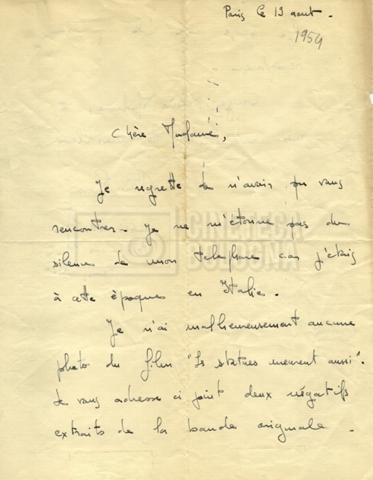 Paris le 13 août.
1954
Chère Madame,
Je regrette de n'avoir pu vous
rencontrer. Je ne m'étonne pas du
silence de mon téléphone car j'étais
à cette époque en Italie.
Je n'ai malheureusement aucune
photo du film "Les statues meurent aussi".
Je vous adresse ci joint deux négatifs
extraits de la bande originale.
CINETECA
BOLOGNA